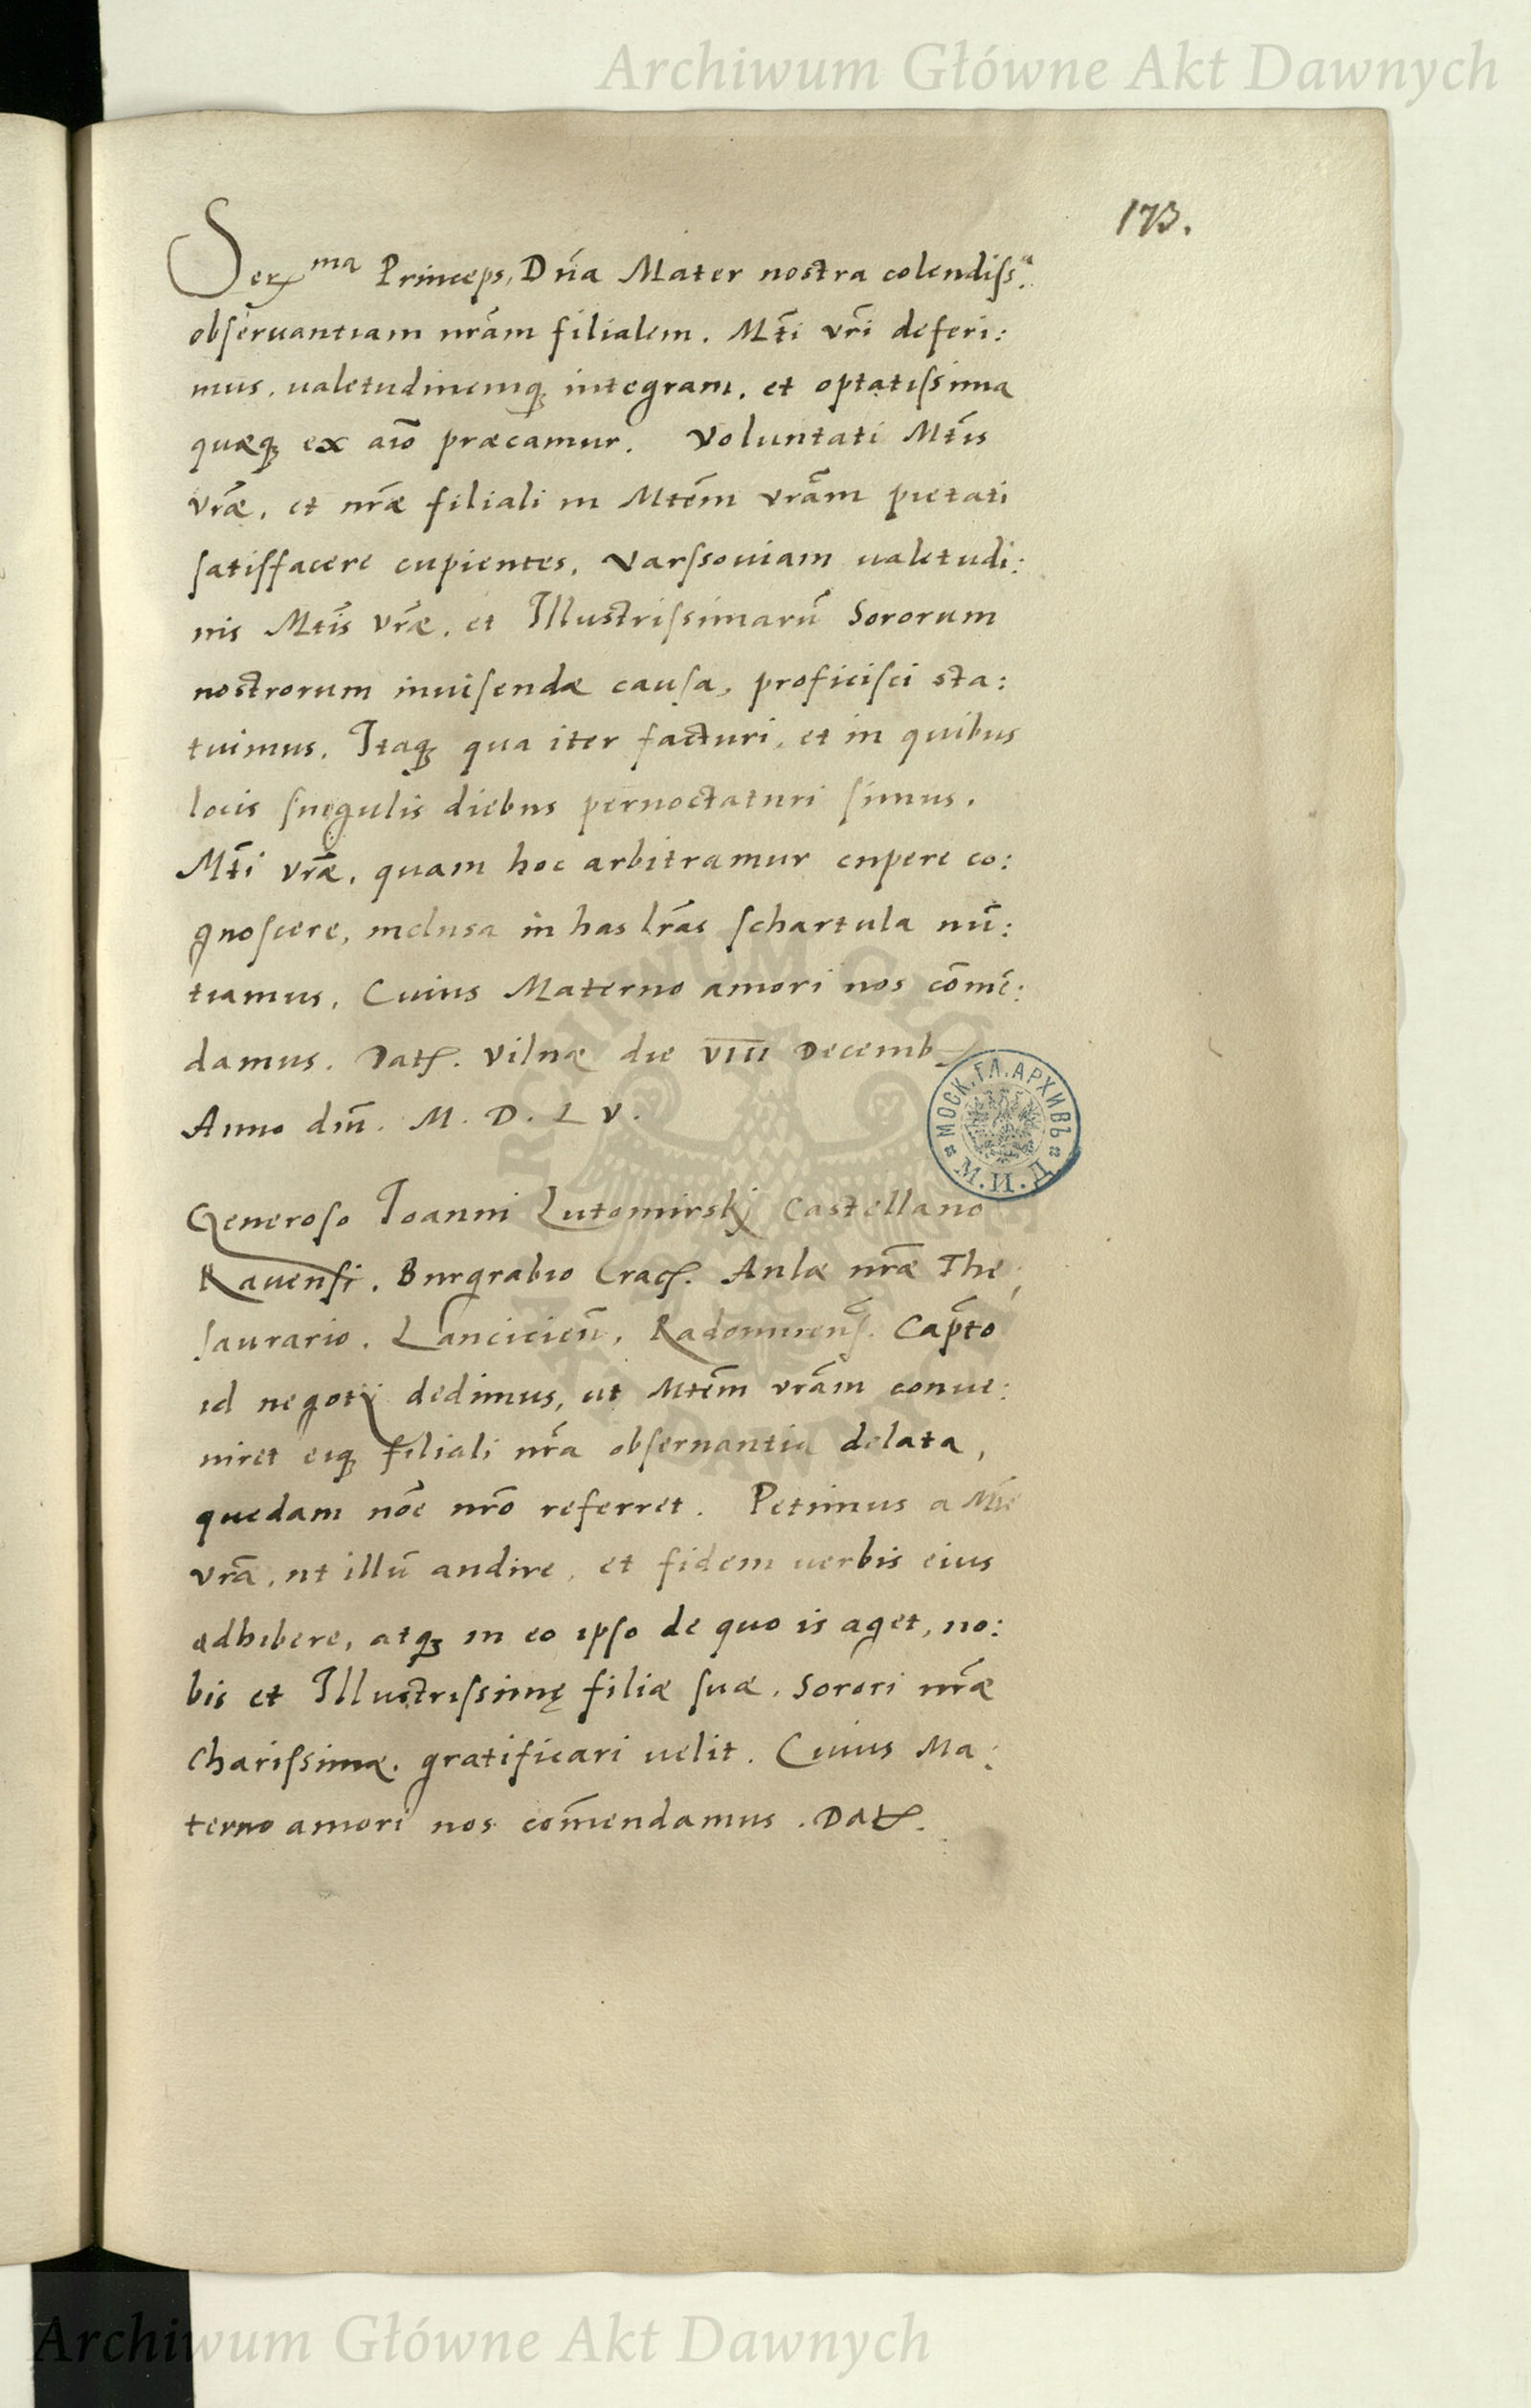 Archiwum Główne Akt Dawnych
173.
Ser^ma Princeps, Dña Mater nostra colendiss^a.
obseruantiam nrãm filialem. Mti̅ vri̅ deferi:
mus. ualetudinemq3 integram. et optatissima
quæq3 ex aio̅ præcamur. Voluntati Mti̅s
vræ̅, et nræ̅ filiali in Mte̅m vrãm pietati
satisfacere cupientes, Varssouiam ualetudi:
nis Mti̅s vræ̅. et Illustrissimaru̅ Sororum
nostrorum inuisendæ causa, proficisci sta:
tuimus. Itaq3 qua iter facturi, et in quibus
locis singulis diebus pernoctaturi simus.
Mti̅ vræ̅, quam hoc arbitramur cupere co:
gnoscere, inclusa in has lrãs schartula nu̅:
tiamus, Cuius Materno amori nos co̅me̅:
damus. Dat. Vilnæ die VIII Decemb
Anno dni̅. M. D. L V.
МОСК. ГЛ. АРХИВЪ
М. И. Д.
Generoso Ioanni Lutomirskj Castellano
Rauensi. Burgrabio Crac. Aulæ nræ̅ The,
saurario. Lancicien̅, Radomiens. Capto̅
id negotij dedimus, ut Mte̅m vrãm conue:
niret eiq3 filiali nrã obseruantia delata,
quedam no̅e nro̅ referret. Petimus a Mte̅
vrã, ut illu̅ audire, et fidem uerbis eius
adhibere, atq3 in eo ipso de quo is aget, no:
bis et Illustrissimę filiæ suæ. Sorori nræ̅
Charissimæ. gratificari uelit. Cuius Ma:
terno amori nos com̅endamus. Dat.
Archiwum Główne Akt Dawnych